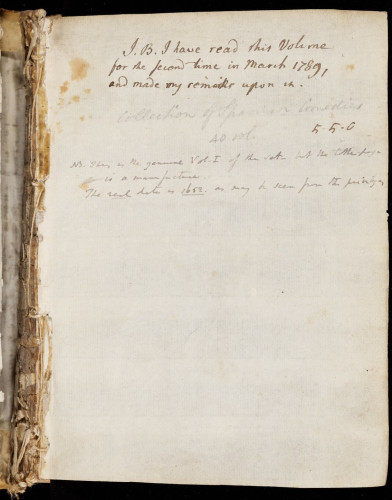 J. B. I have read this Volume
for the second time in March 1789,
and made my remarks upon it.
Collection of Spanish Comedies
40 vol.
5-5-0
NB. This is the genuine Vol. I of the set but the title page
is a manufacture.
The real date is 1652. as may be seen from the privileges